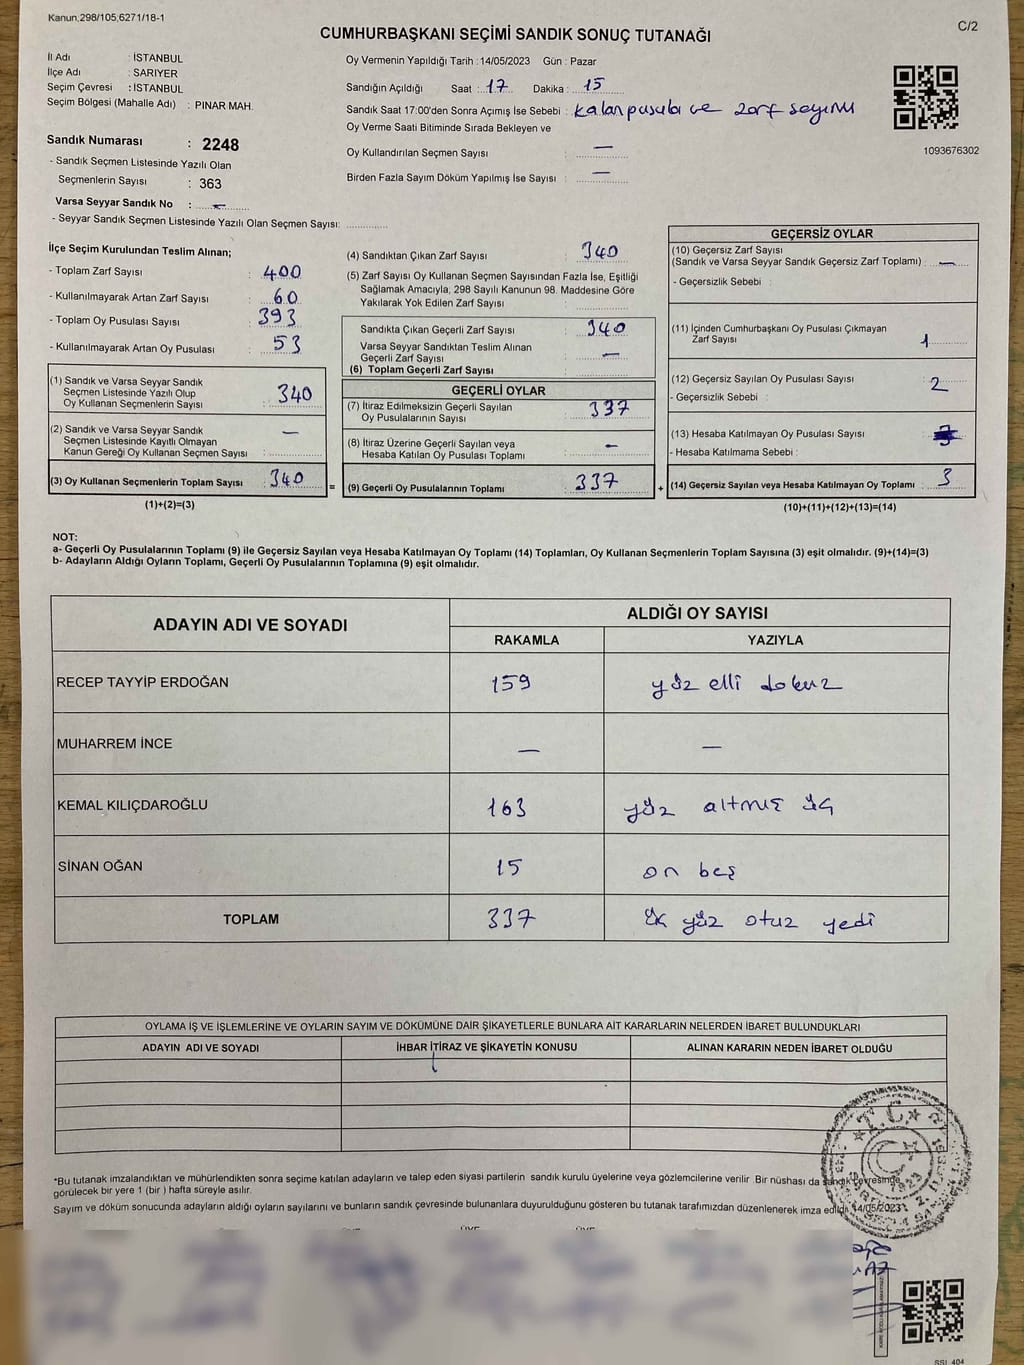 Kanun,298/105,6271/18-1
C/2
CUMHURBAŞKANI SEÇİMİ SANDIK SONUÇ TUTANAĞI
İl Adı : İSTANBUL
İlçe Adı : SARIYER
Seçim Çevresi : İSTANBUL
Seçim Bölgesi (Mahalle Adı) : PINAR MAH.
Sandık Numarası : 2248
- Sandık Seçmen Listesinde Yazılı Olan
Seçmenlerin Sayısı : 363
Varsa Seyyar Sandık No : —
- Seyyar Sandık Seçmen Listesinde Yazılı Olan Seçmen Sayısı:
Oy Vermenin Yapıldığı Tarih : 14/05/2023 Gün : Pazar
Sandığın Açıldığı Saat : 17 Dakika : 15
Sandık Saat 17:00'den Sonra Açımış İse Sebebi : Kalan pusula ve zarf sayımı
Oy Verme Saati Bitiminde Sırada Bekleyen ve
Oy Kullandırılan Seçmen Sayısı : —
Birden Fazla Sayım Döküm Yapılmış İse Sayısı : —
1093676302
İlçe Seçim Kurulundan Teslim Alınan;
- Toplam Zarf Sayısı : 400
- Kullanılmayarak Artan Zarf Sayısı : 60
- Toplam Oy Pusulası Sayısı : 393
- Kullanılmayarak Artan Oy Pusulası : 53
(1) Sandık ve Varsa Seyyar Sandık
Seçmen Listesinde Yazılı Olup
Oy Kullanan Seçmenlerin Sayısı : 340
(2) Sandık ve Varsa Seyyar Sandık
Seçmen Listesinde Kayıtlı Olmayan
Kanun Gereği Oy Kullanan Seçmen Sayısı : —
(3) Oy Kullanan Seçmenlerin Toplam Sayısı : 340
(1)+(2)=(3)
=
(4) Sandıktan Çıkan Zarf Sayısı : 340
(5) Zarf Sayısı Oy Kullanan Seçmen Sayısından Fazla İse, Eşitliği
Sağlamak Amacıyla, 298 Sayılı Kanunun 98. Maddesine Göre
Yakılarak Yok Edilen Zarf Sayısı :
Sandıkta Çıkan Geçerli Zarf Sayısı : 340
Varsa Seyyar Sandıktan Teslim Alınan
Geçerli Zarf Sayısı : —
(6) Toplam Geçerli Zarf Sayısı :
GEÇERLİ OYLAR
(7) İtiraz Edilmeksizin Geçerli Sayılan
Oy Pusulalarının Sayısı : 337
(8) İtiraz Üzerine Geçerli Sayılan veya
Hesaba Katılan Oy Pusulası Toplamı : —
(9) Geçerli Oy Pusulalarının Toplamı : 337
+
GEÇERSİZ OYLAR
(10) Geçersiz Zarf Sayısı
(Sandık ve Varsa Seyyar Sandık Geçersiz Zarf Toplamı) : —
- Geçersizlik Sebebi :
(11) İçinden Cumhurbaşkanı Oy Pusulası Çıkmayan
Zarf Sayısı : 1
(12) Geçersiz Sayılan Oy Pusulası Sayısı : 2
- Geçersizlik Sebebi :
(13) Hesaba Katılmayan Oy Pusulası Sayısı :
- Hesaba Katılmama Sebebi :
(14) Geçersiz Sayılan veya Hesaba Katılmayan Oy Toplamı : 3
(10)+(11)+(12)+(13)=(14)
NOT:
a- Geçerli Oy Pusulalarının Toplamı (9) ile Geçersiz Sayılan veya Hesaba Katılmayan Oy Toplamı (14) Toplamları, Oy Kullanan Seçmenlerin Toplam Sayısına (3) eşit olmalıdır. (9)+(14)=(3)
b- Adayların Aldığı Oyların Toplamı, Geçerli Oy Pusulalarının Toplamına (9) eşit olmalıdır.
ADAYIN ADI VE SOYADI ALDIĞI OY SAYISI
RAKAMLA YAZIYLA
RECEP TAYYİP ERDOĞAN 159 yüz elli dokuz
MUHARREM İNCE — —
KEMAL KILIÇDAROĞLU 163 yüz altmış üç
SİNAN OĞAN 15 on beş
TOPLAM 337 üç yüz otuz yedi
OYLAMA İŞ VE İŞLEMLERİNE VE OYLARIN SAYIM VE DÖKÜMÜNE DAİR ŞİKAYETLERLE BUNLARA AİT KARARLARIN NELERDEN İBARET BULUNDUKLARI
ADAYIN ADI VE SOYADI İHBAR İTİRAZ VE ŞİKAYETİN KONUSU ALINAN KARARIN NEDEN İBARET OLDUĞU
*Bu tutanak imzalandıktan ve mühürlendikten sonra seçime katılan adayların ve talep eden siyasi partilerin sandık kurulu üyelerine veya gözlemcilerine verilir. Bir nüshası da sandık çevresinde
görülecek bir yere 1 (bir ) hafta süreyle asılır.
Sayım ve döküm sonucunda adayların aldığı oyların sayılarını ve bunların sandık çevresinde bulunanlara duyurulduğunu gösteren bu tutanak tarafımızdan düzenlenerek imza edildi. 14/05/2023
T.C.
SSI 404